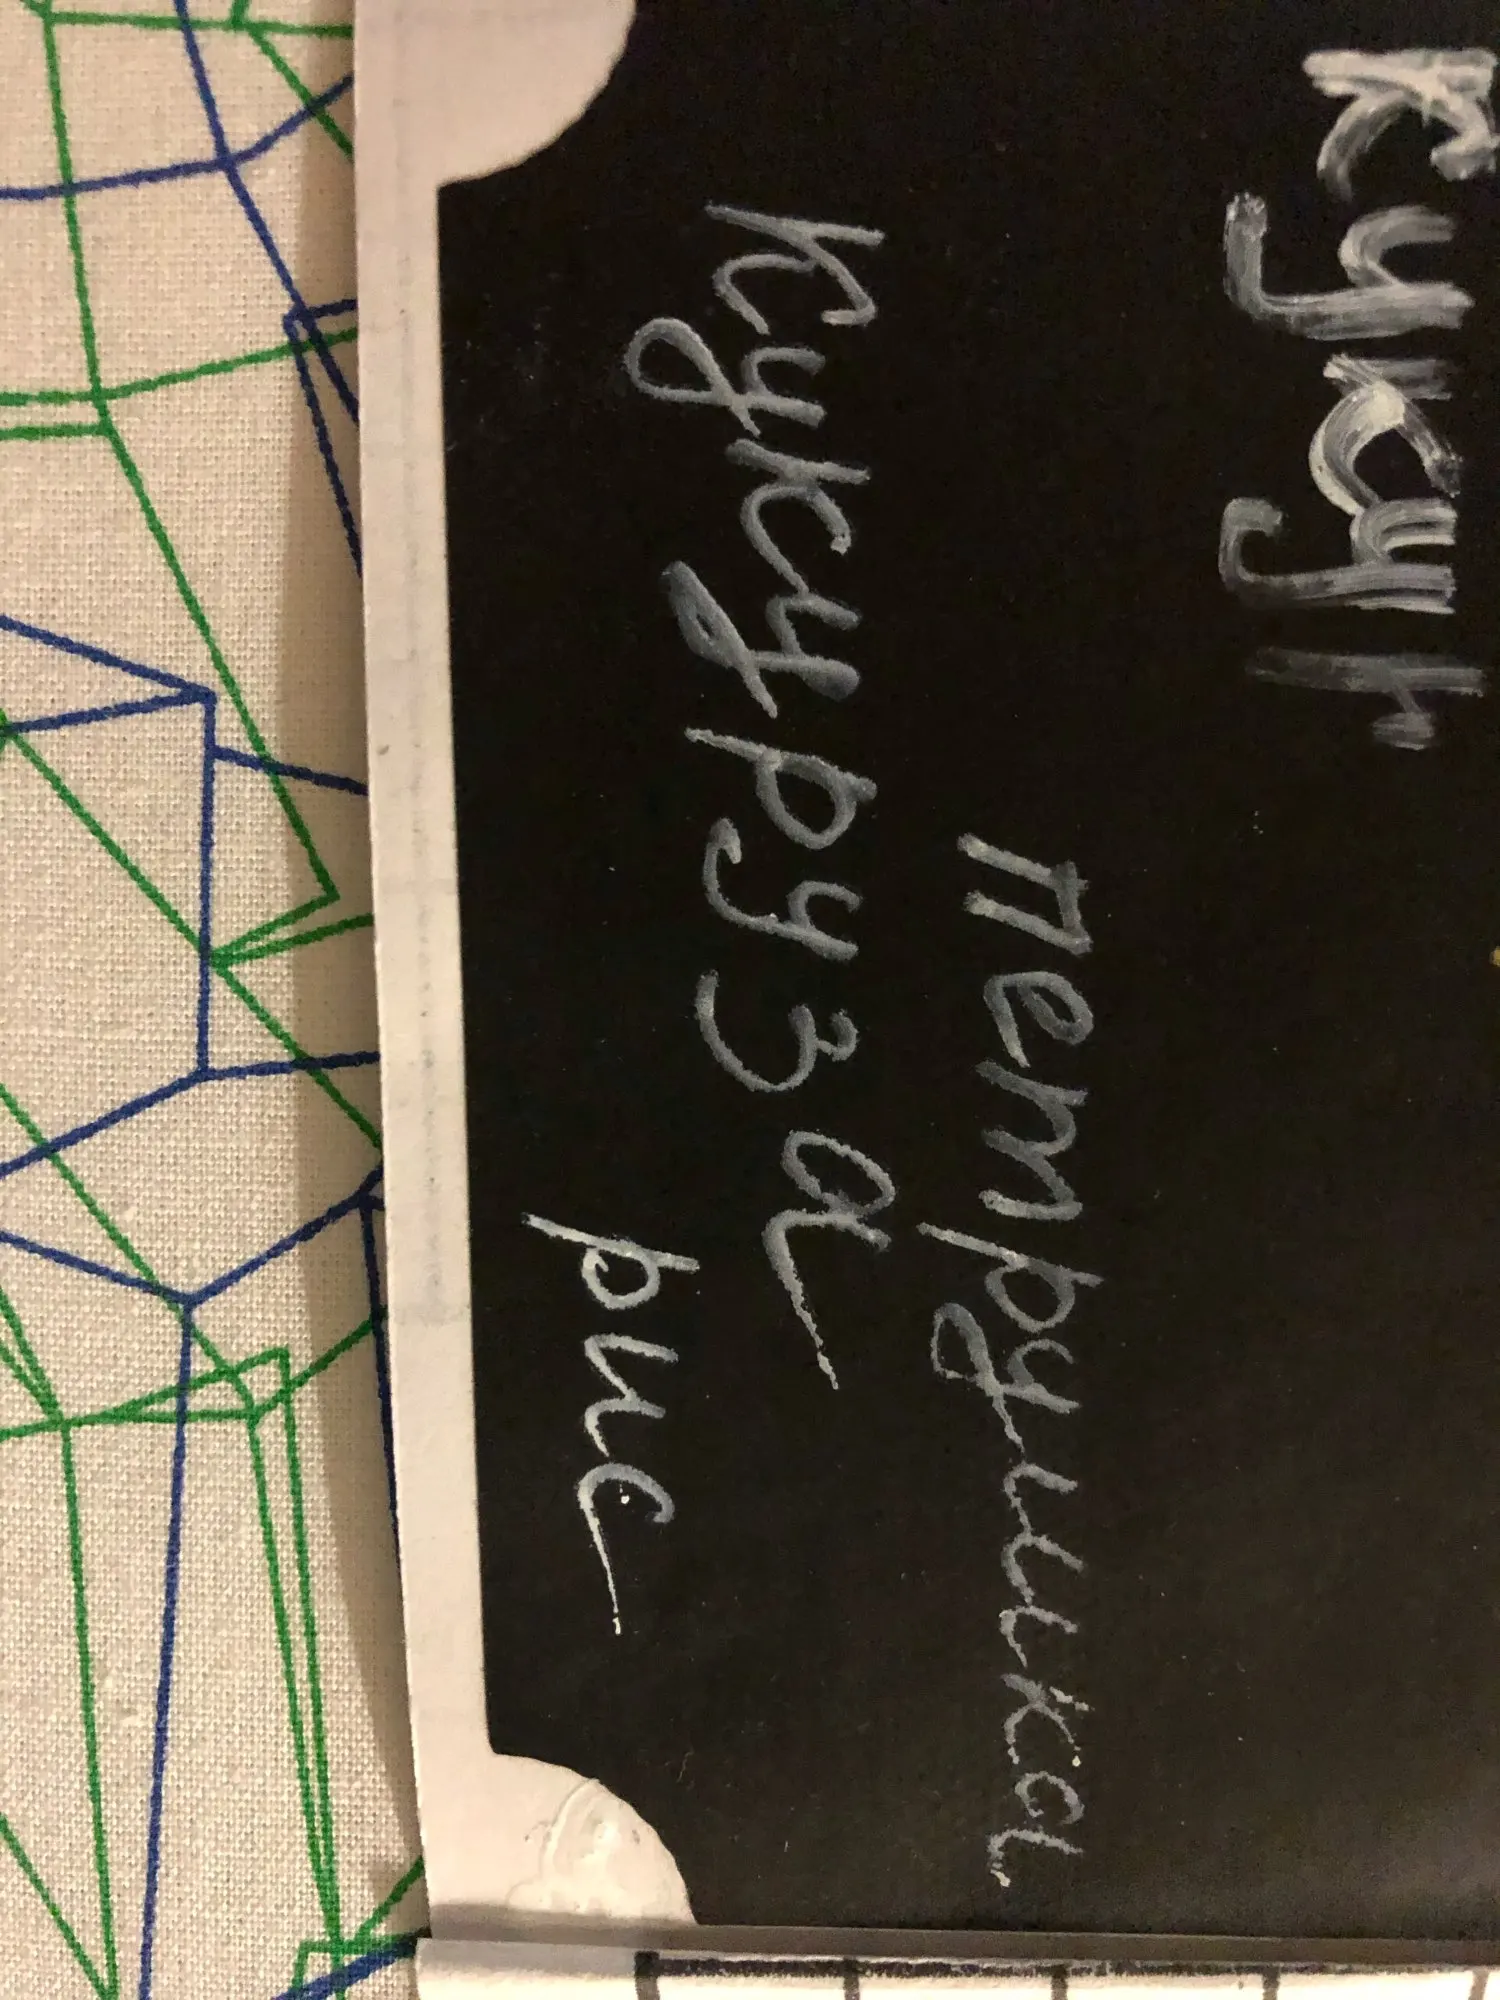 кукур
петрушка
кукуруза
рис